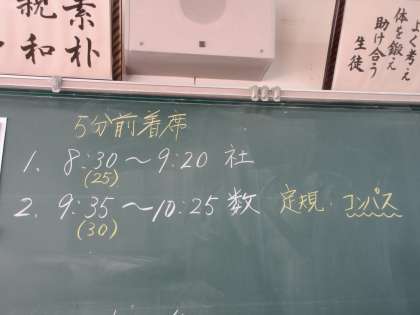 素朴
親和
よく考え
体を鍛え
助け合う
生徒
5分前着席
1. 8:30～9:20 社
(25)
2. 9:35～10:25 数 定規・コンパス
(30)